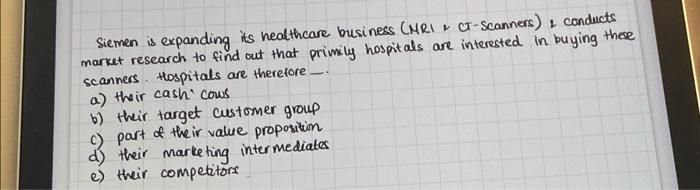 Siemen is expanding its healthcare business (MRI & CT-Scanners) & conducts
market research to find out that primily hospitals are interested in buying these
scanners. Hospitals are therefore —.
a) their cash cows
b) their target customer group
c) part of their value proposition
d) their marketing intermediates
e) their competitors